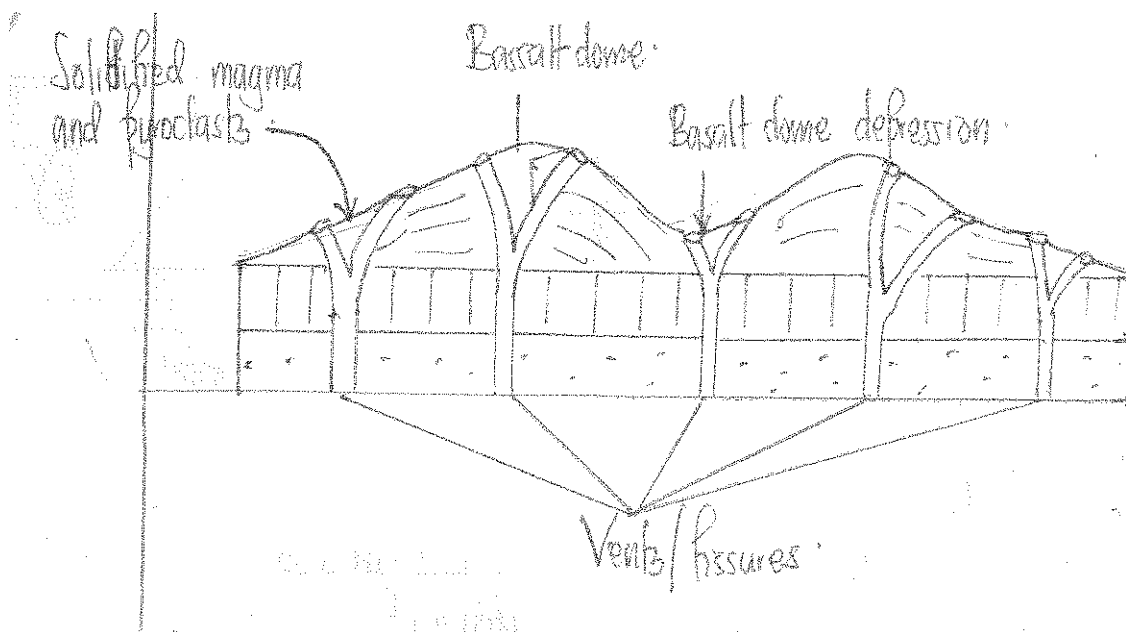 Solidified magma
and pyroclasts.
Bassalt dome.
Basalt dome depression.
Vents/fissures.